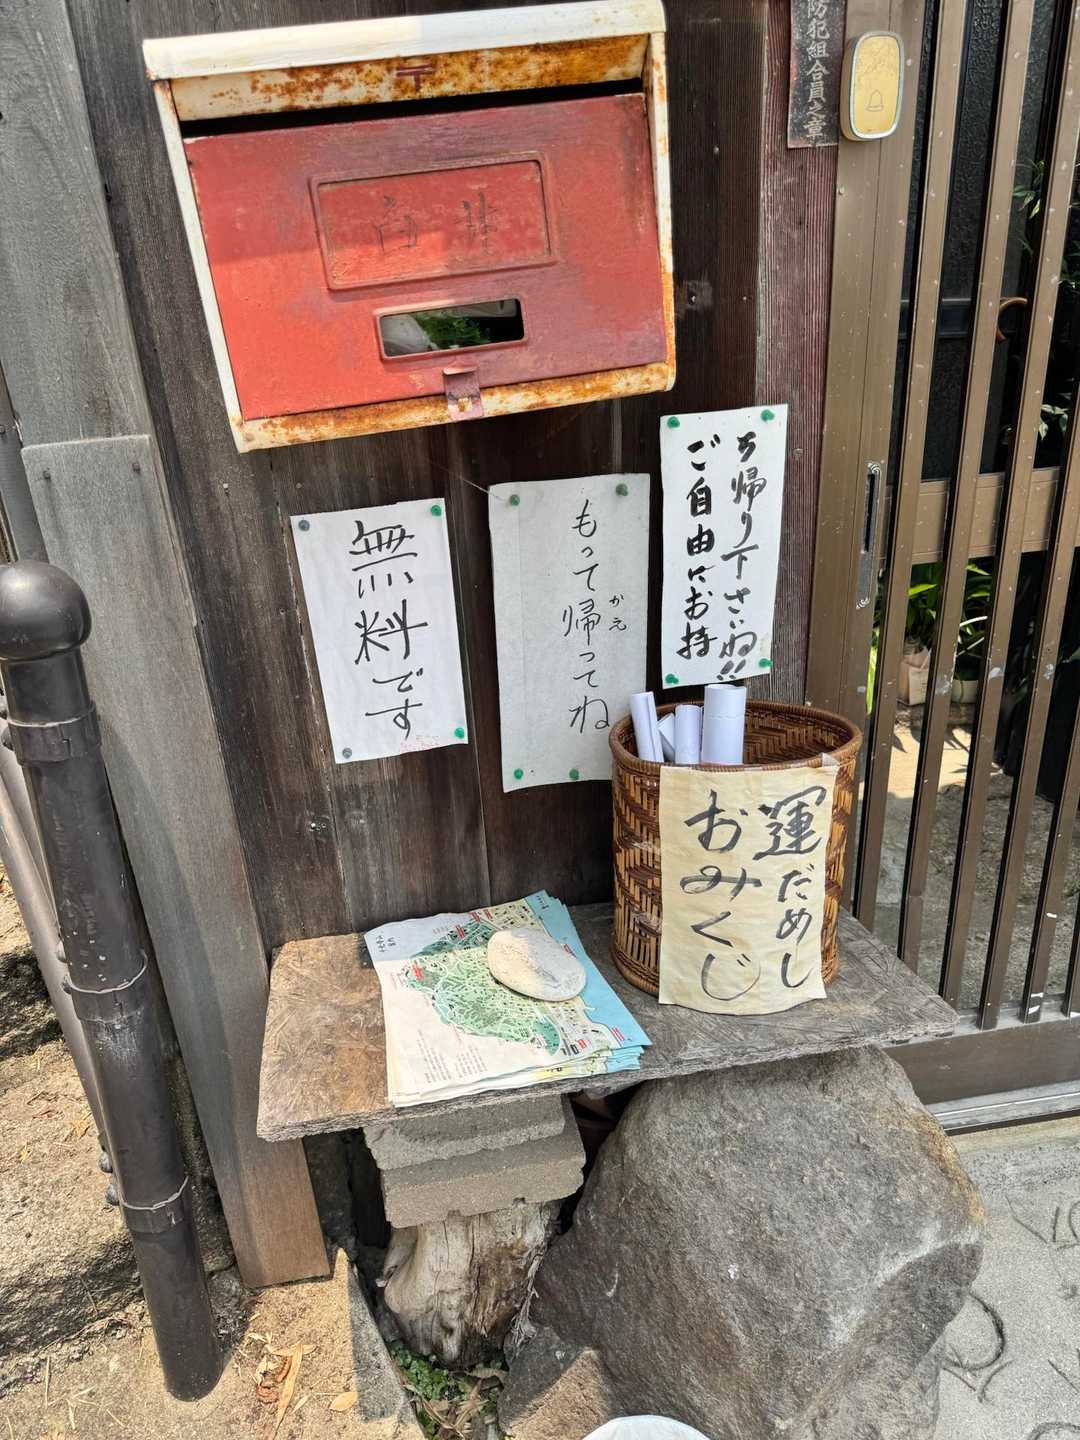 防犯組合員之章
〒
白井
無料です
もって帰ってね
かえ
ご自由にお持
ち帰り下さいね!!
運だめし
おみくじ